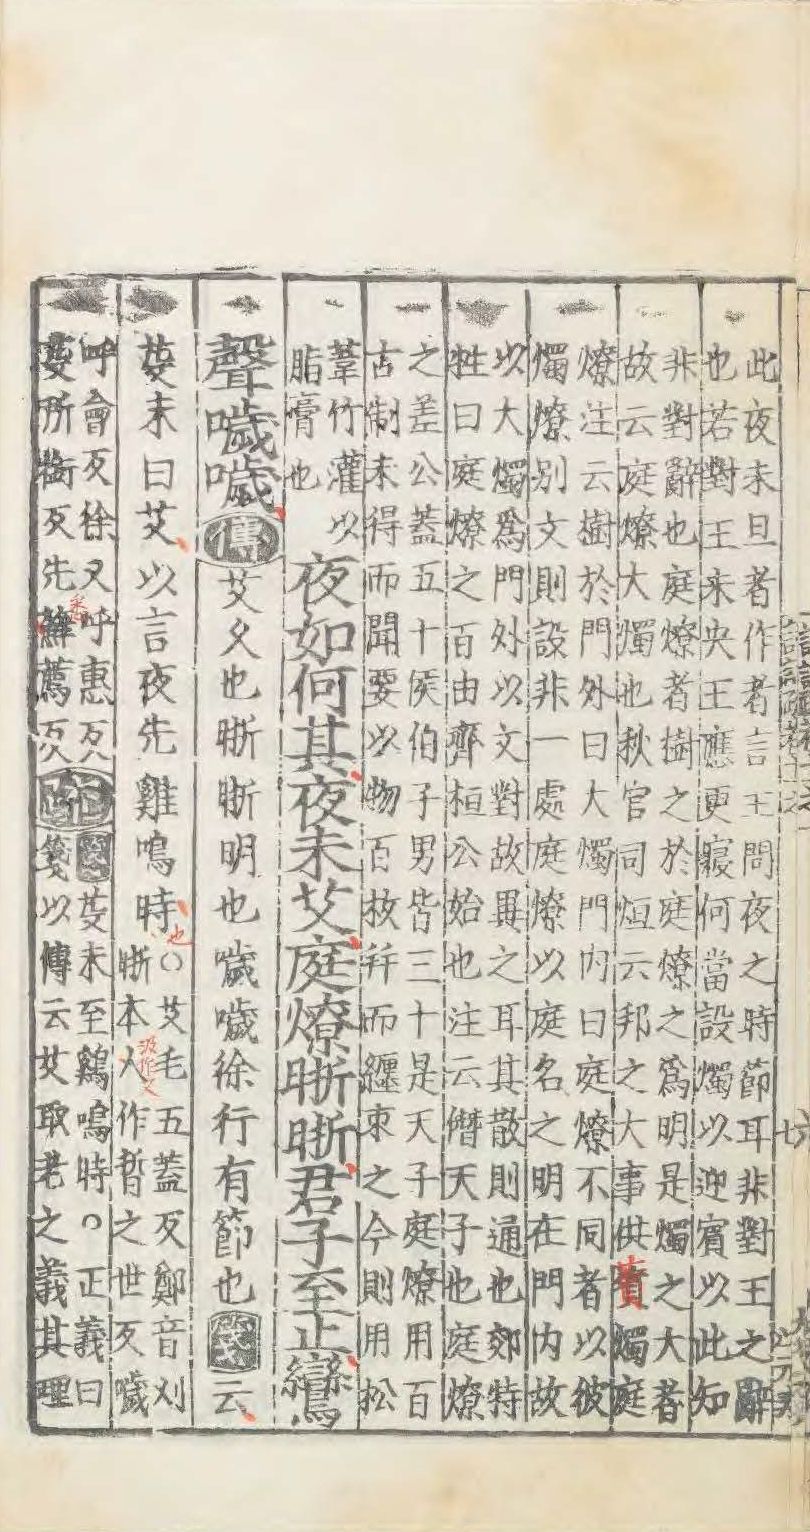 此夜未旦者作者言王問夜之時節耳非對王之辭
也若對王未央王應更寢何當設燭以迎賓以此知
非對辭也庭燎者樹之於庭燎之爲明是燭之大者
故云庭燎大燭也秋官司烜云邦之大事供賁燭庭
燎注云樹於門外曰大燭門內曰庭燎不同者以彼
燭燎別文則設非一處庭燎以庭名之明在門內故
以大燭爲門外以文對故異之耳其散則通也郊特
牲曰庭燎之百由齊桓公始也注云僭天子也庭燎
之差公蓋五十侯伯子男皆三十是天子庭燎用百
古制未得而聞要以物百枚并而纏束之今則用松
葦竹灌以
脂膏也
夜如何其夜未艾庭燎晣晣君子至止鸞
聲噦噦
傳
艾久也晣晣明也噦噦徐行有節也
箋
云
芟末曰艾以言夜先雞鳴時
也
○艾毛五蓋反鄭音刈
晣本又作晢之世反噦
呼會反徐又呼惠反
芟所銜反先薦反
疏
箋芟末至鷄鳴時○正義曰
箋以傳云艾取老之義其理